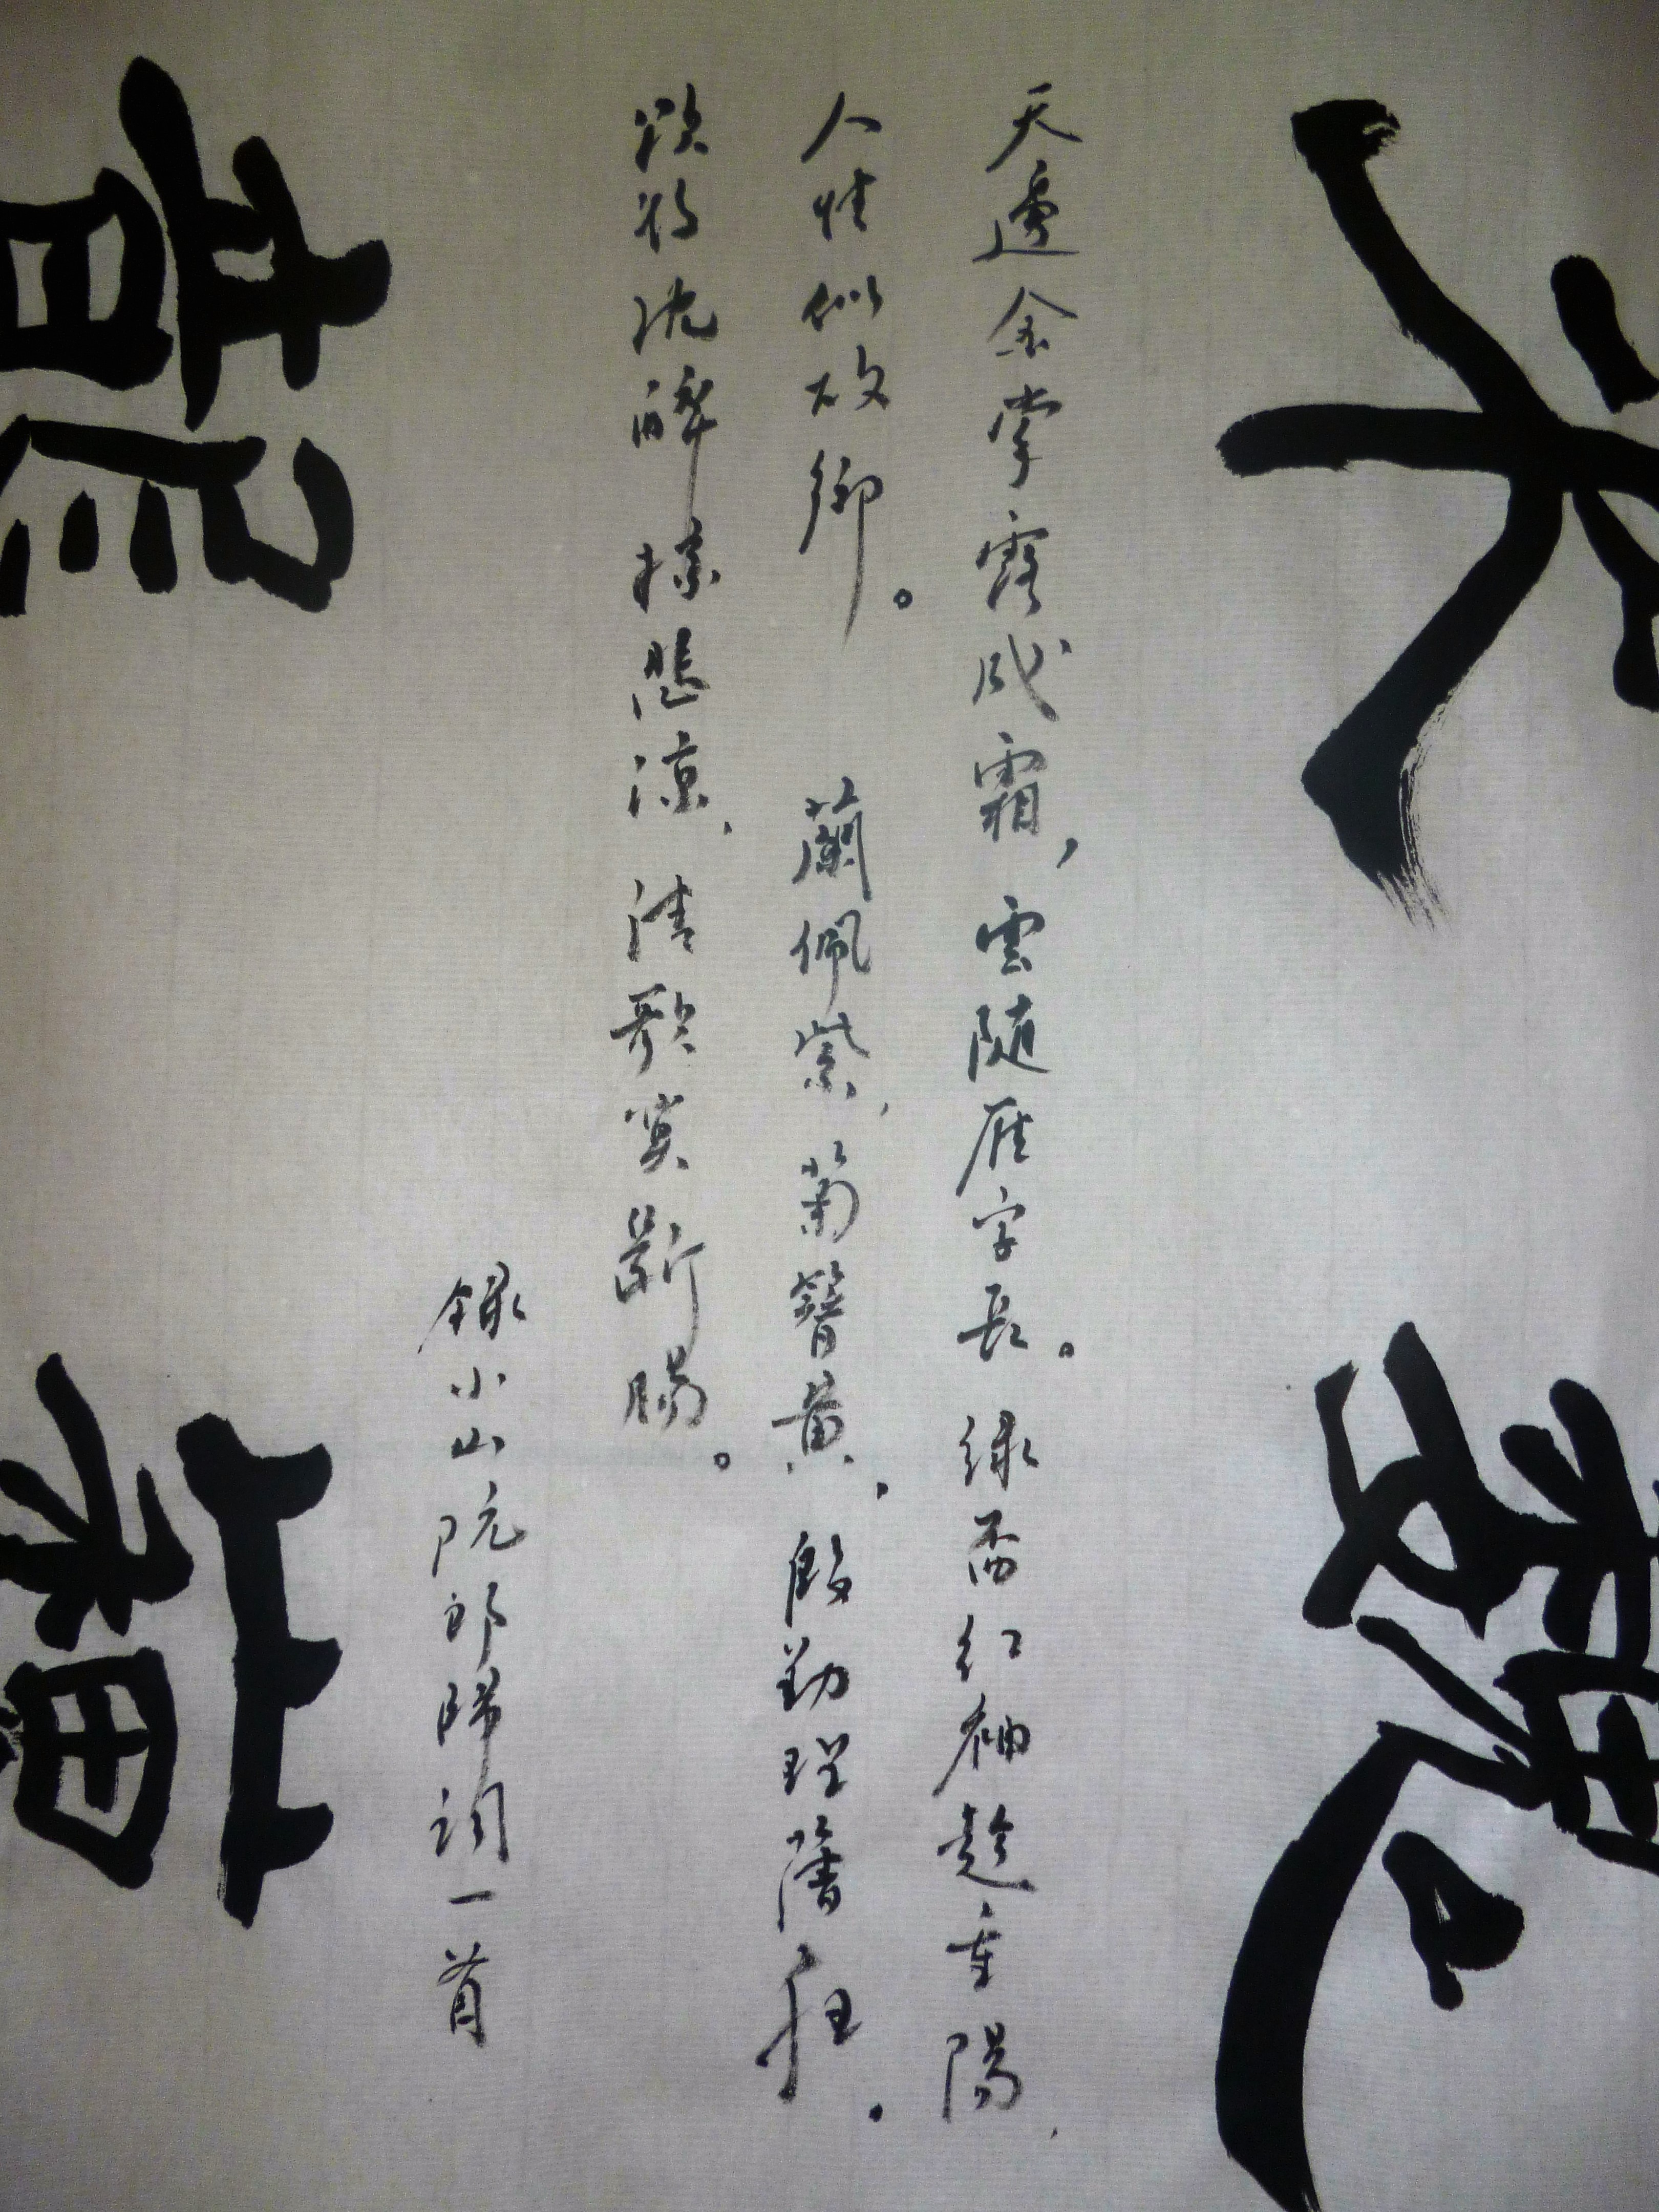 天邊金掌露成霜，雲随雁字長。綠盃紅袖趁重陽，
人情似故鄉。 蘭佩紫，菊簪黄，殷勤理舊狂。
欲将沈醉換悲凉，清歌莫斷腸。
錄小山阮郎歸詞一首